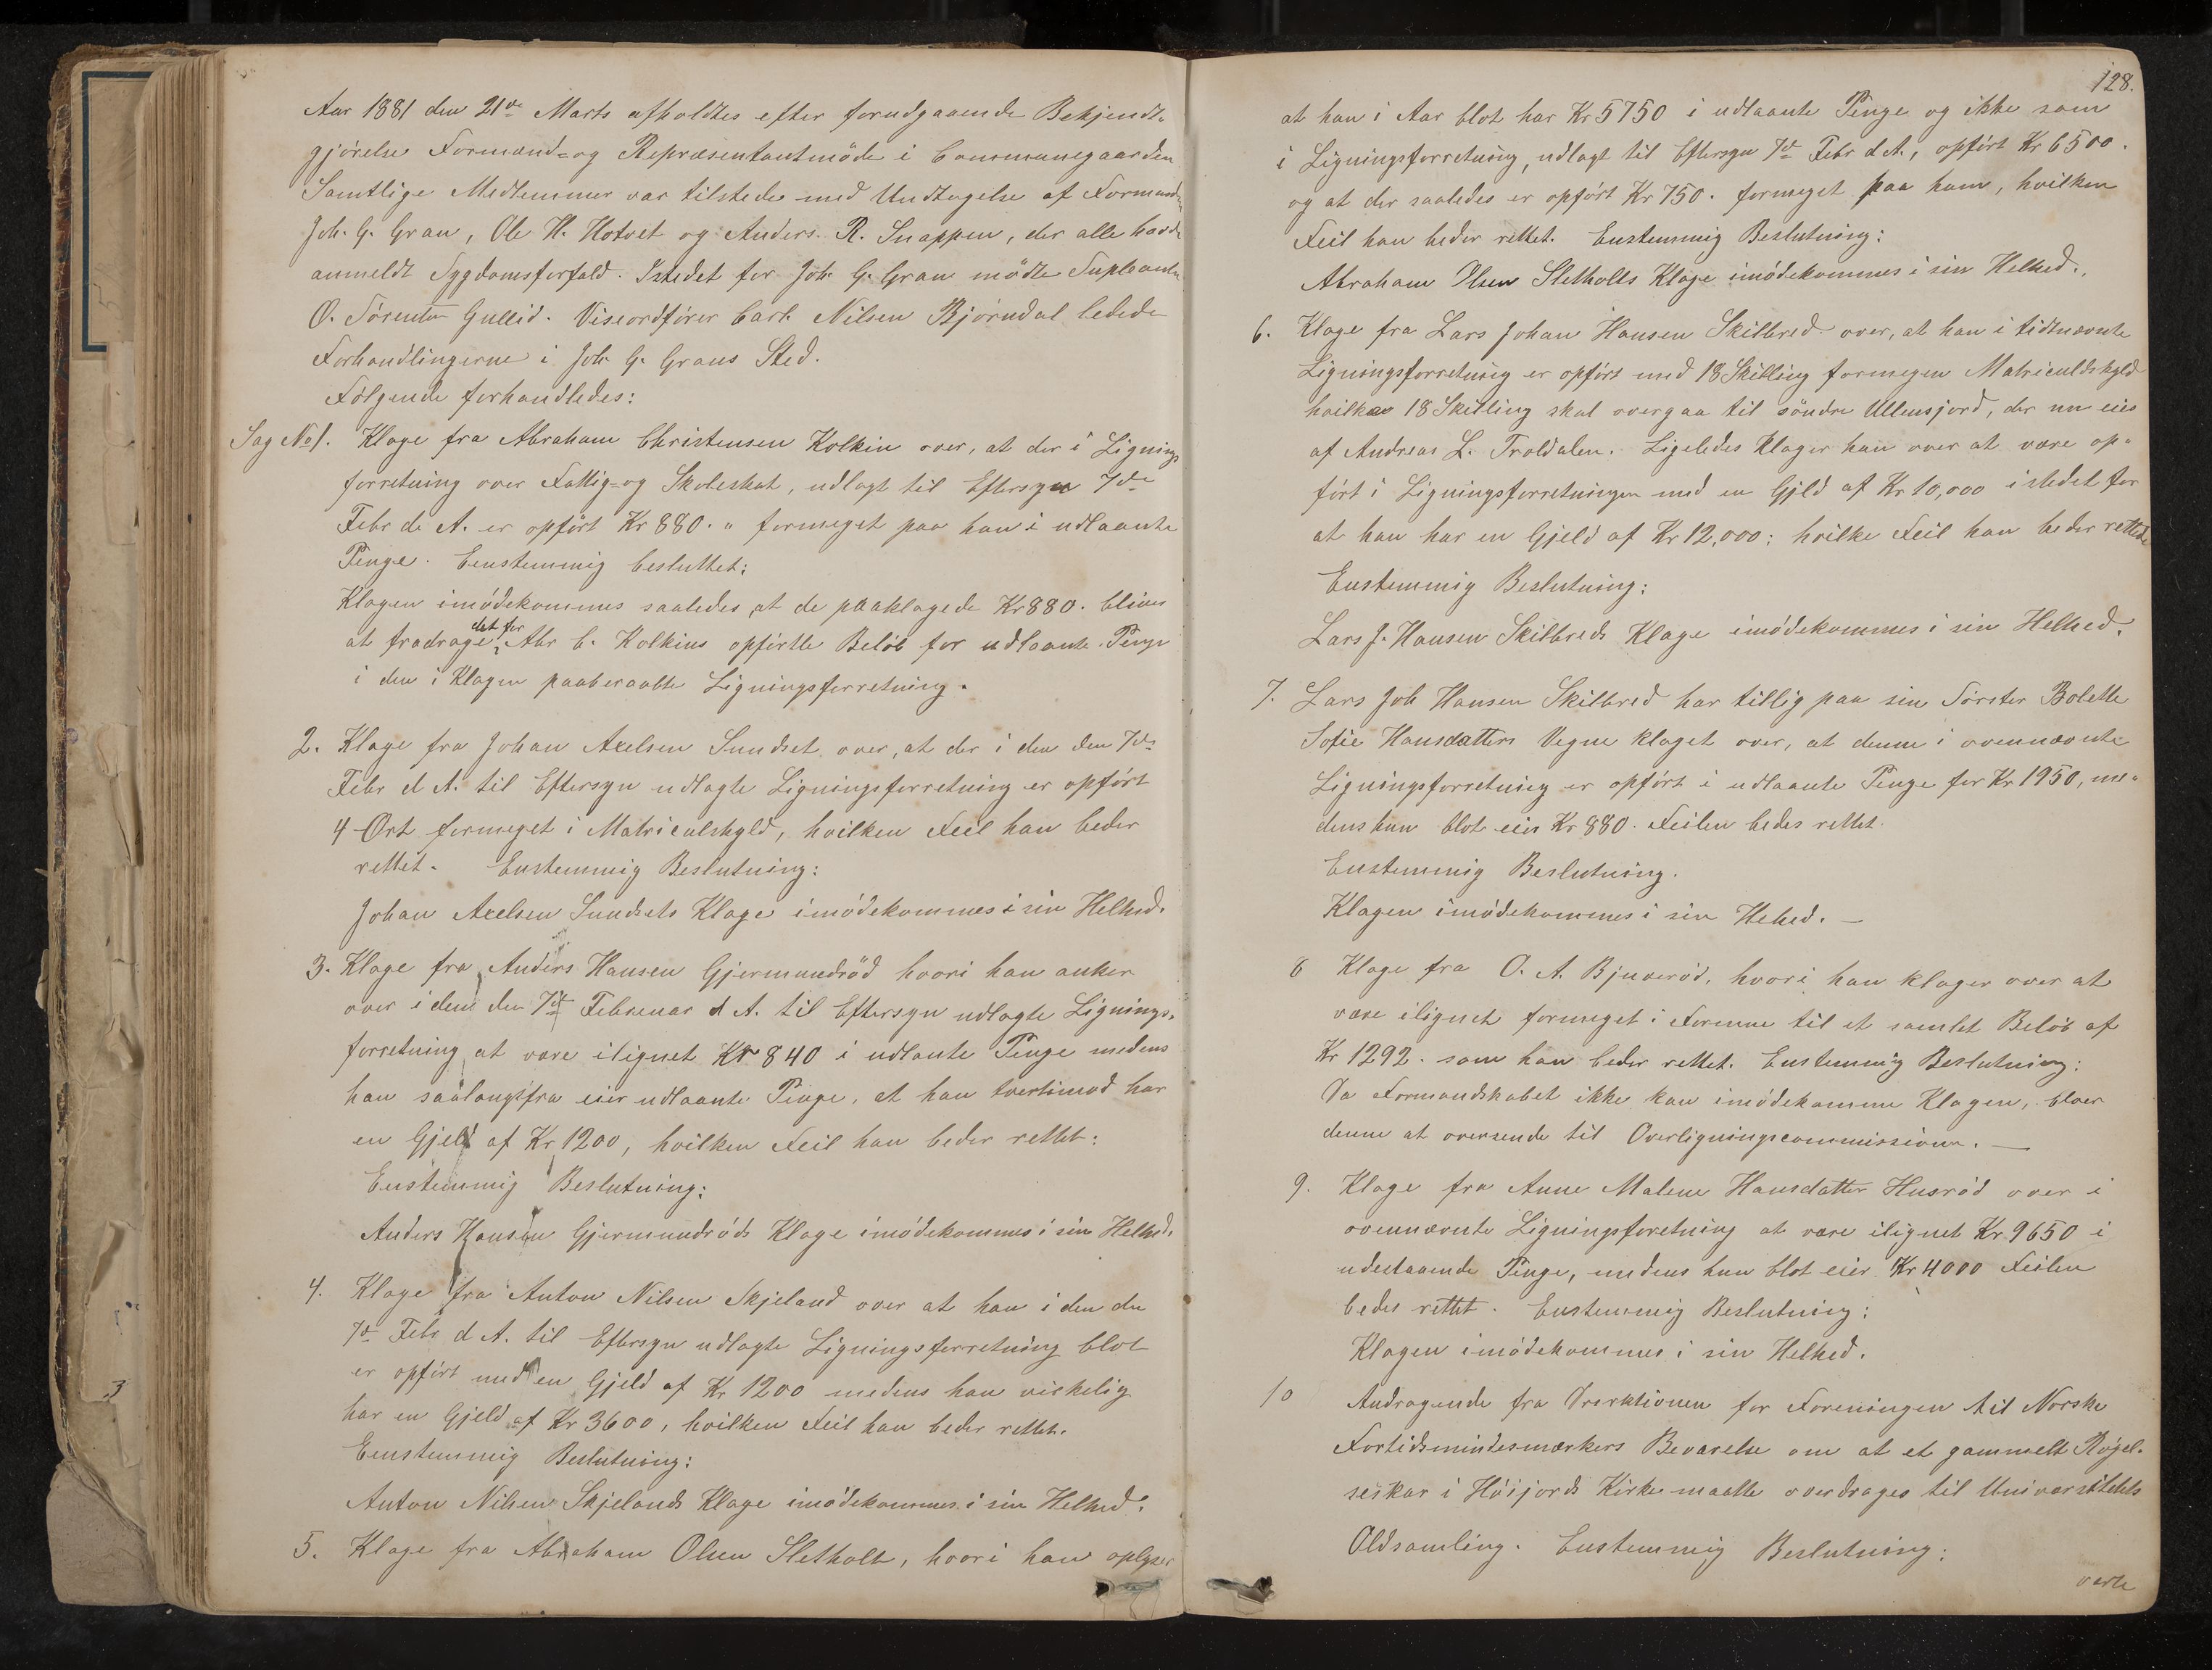 Aar 1881 den 21de Marts afholdtes efter forudgaaende Bekjendt-
gjörelse Formand- og Repræsentantmöde i Communegaarden
Samtlige Medlemmer var tilstede med Undtagelse af Formanden
Joh. G. Gran, Ole H. Hotvet og Anders R. Snappen, der alle havde
anmeldt Sygdomsforfald. Istedet for Joh. G. Gran mödte Supleanten
O. Sörensen Gullid. Viseordförer Carl Nilsen Bjørndal ledede
Forhandlingerne i Joh. G. Grans Sted.
Fölgende forhandledes:
Sag No 1. Klage fra Abraham Christensen Kolkin over, at der i Lignings
forretning over Fattig- og Skoleskat, udlagt til Eftersyn 7de
Febr d. A. er opfört Kr 880. " formeget paa han i udlaante
Penge. Eenstemmig besluttet:
Klagen imödekommes saaledes at de paaklagede Kr 880. bliver
at fradrage det for Abr C. Kolkins opförtte Belöb for udlaante Penge
i den i Klagen paaberaabte Ligningsforretning.
2. Klage fra Johan Axelsen Sundset over, at der i den den 7de
Febr d A. til Eftersyn udlagte Ligningsforretning er opfört
4 Ort formeget i Matriculskyld, hvilken Feil han beder
rettet. Enstemmig Beslutning:
Johan Axelsen Sundsets Klage imödekommes i sin Helhed.
3. Klage fra Anders Hansen Gjermundröd hvori han anker
over i den den 7de Februar d A. til Eftersyn udlagte Lignings-
forretning at være ilignet Kr 840 i udlante Penge medens
han saalangtfra eier udlaante Penge, at han tvertimod har
en Gjeld af Kr 1200, hvilken Feil han beder rettet:
Eenstemmig Beslutning:
Anders Hansen Gjermundröds Klage imödekommes i sin Helhed.
4. Klage fra Anton Nilsen Skjeland over at han i den den
7de Febr d A. til Eftersyn udlagte Ligningsforretning blot
er opfört med en Gjeld af Kr 1200 medens han virkelig
har en Gjeld af Kr 3600, hvilken Feil han beder rettet.
Eenstemmig Beslutning:
Anton Nilsen Skjelands Klage imödekommes i sin Helhed.
5. Klage fra Abraham Olsen Sletholt, hvori han oplyser
128.
at han i Aar blot har Kr 5750 i udlaante Penge og ikke som
i Ligningsforretning, udlagt til Eftersyn 7de Febr d. A., opfört Kr 6500.
og at der saaledes er opfört Kr 750. formeget paa ham, hvilken
Feil han beder rettet. Enstemmig Beslutning:
Abraham Olsen Sletholts Klage imödekommes i sin Helhed.
6. Klage fra Lars Johan Hansen Skilbred over, at han i tidtnævnte
Ligningsforretning er opfört med 18 Skilling formegen Matriculskyld
hvilke 18 Skilling skal overgaa til söndre Ullensjord, der nu eies
af Andreas L. Troldalen. Ligeledes klager han over at være op-
fört i Ligningsforretningen med en Gjld af Kr 10,000 istedet for
at han har en Gjeld af Kr 12,000: hvilke Feil han beder rettede
Enstemmig Beslutning:
Lars J. Hansen Skilbreds Klage imödekommes i sin Helhed.
7. Lars Joh Hansen Skilbred har tillig paa sin Sörster Bolette
Sofie Hansdatters Vegne klaget over, at denne i ovennævnte
Ligningsforretning er opfört i udlaante Penge for Kr 1950, me-
dens hun blot eier Kr 880. Feilen bedes rettet.
Enstemmig Beslutning.
Klagen imödekommes i sin Helhed. —
8 Klage fra O. A. Bjueröd, hvori han klager over at
være ilignet formeget i Formue til et samlet Belöb af
Kr 1292. som han beder rettet. Enstemmig Beslutning:
Da Formandskabet ikke kan imödekomme Klagen, bliver
denne at oversende til Overligningscommissionen. —
9. Klage fra Anne Malene Hansdatter Husröd over i
ovennævnte Ligningsforetning at være ilignet Kr 9650 i
udestaaende Penge, medens hun blot eier Kr 4000 Feilen
bedes rettet. Enstemmig Beslutning:
Klagen imödekommes i sin Helhed.
10 Andragende fra Direktionen for Foreningen til Norske
Fortidsmindesmærkers Bevarelse om at et gammelt Rögel-
seskar i Höijords Kirke maatte overdrages til Universitetets
Oldsamling. Enstemmig Beslutning:
verte